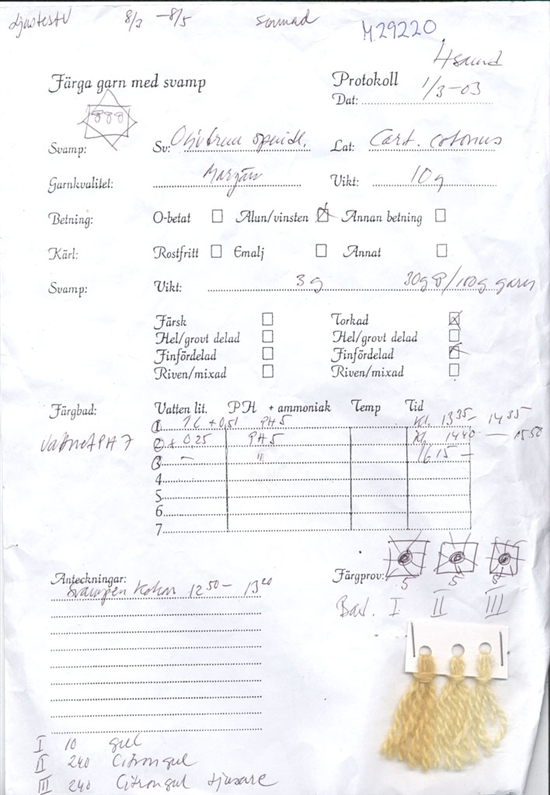 ljustest 8/3 - 8/5
M29220
Färga garn med svamp
Protokoll
Dat: 1/3-03
Svamp: Sv: Lat: Cort. cotoneus
Garnkvalitet: Vikt: 10 g
Betning: O-betat Alun/vinsten Annan betning
Kärl: Rostfritt Emalj Annat
Svamp: Vikt: 3 g 30g /100g garn
Färsk Torkad
Hel/grovt delad Hel/grovt delad
Finfördelad Finfördelad
Riven/mixad Riven/mixad
Färgbad: Vatten lit. PH + ammoniak Temp Tid
1 + 0,5 l PH 5 Kl. 13 35 - 14 35
vattnet PH 7 2 + 0,25 PH 5 Kl. 14 40 - 15 50
3 - " 16 15 -
4
5
6
7
Anteckningar: Färgprov: 5 5
svampen kokn 12 50 - 13 20
Bad. I II III
I 10 gul
II 240 Citrongul
III 240 Citrongul ljusare